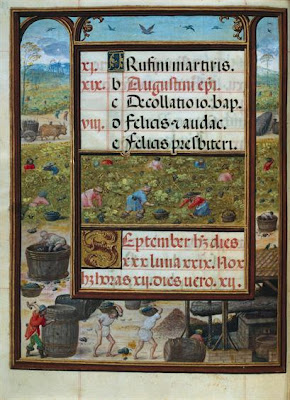 xj. A Rufini martiris.
xix. b Augustini epi.
c Decollatio io. bap.
viij. d Felicis ⁊ audac.
e Felicis presbiteri.
September hz dies
xxx luna xxix. Nox
hz horas xij. dies vero. xij.